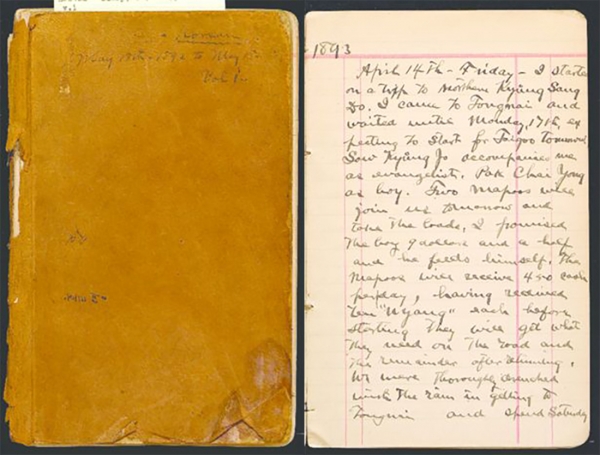 May 18th 1892 to May
Vol 1
1893
April 14th - Friday - I started
on a trip to Northern Kyung Sang
Do. I came to Tongnai and
waited until Monday, 17th ex
pecting to start for Taigoo tomorrow.
Saw Kyung Jo accompanies me
as evangelist. Pak Chai Yong
as boy. Two mapoos will
join us tomorrow and
take the loads. I promised
the boy 9 dollars and a half
and he feeds himself. The
mapoos will receive 450 cash
per day, having received
ten "Nyang" each before
starting they will get what
they need on the road and
the remainder after returning.
We were thoroughly drenched
with the rain in getting to
Tongnai and spend Saturday